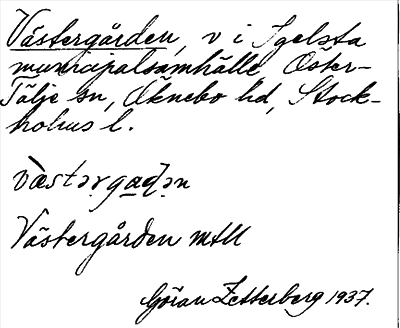 Västergården, v i Igelsta
municipalsamhälle Öster-
Tälje sn, Öknebo hd, Stock-
holms l.
vàstərgaḍən
Västergården mtll
Göran Zetterberg 1937.